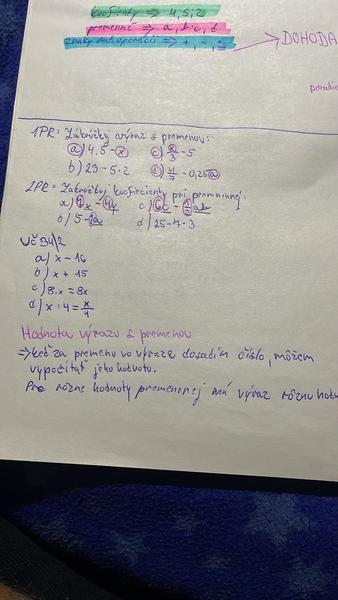 koeficienty => 4, 5, 2
premenné => a, b, c, d
znaky mat. operácií => +, -, :
DOHODA
1PR: Zakrúžkuj výraz s premenou:
a) 4.5-x c) x/3-5
b) 23-5.2 d) 4/7-0,25a
2PR: Zakrúžkuj koeficienty pri premennej:
b) 5-1a d) 25-4.3
Uč 34/2
a) x-16
b) x+15
c) 8.x=8x
d) x:4=x/4
Hodnota výrazu s premenou
=> keď za premenu vo výraze dosadím číslo, môžem
vypočítať jeho hodnotu.
Pre rôzne hodnoty premennej má výraz rôznu